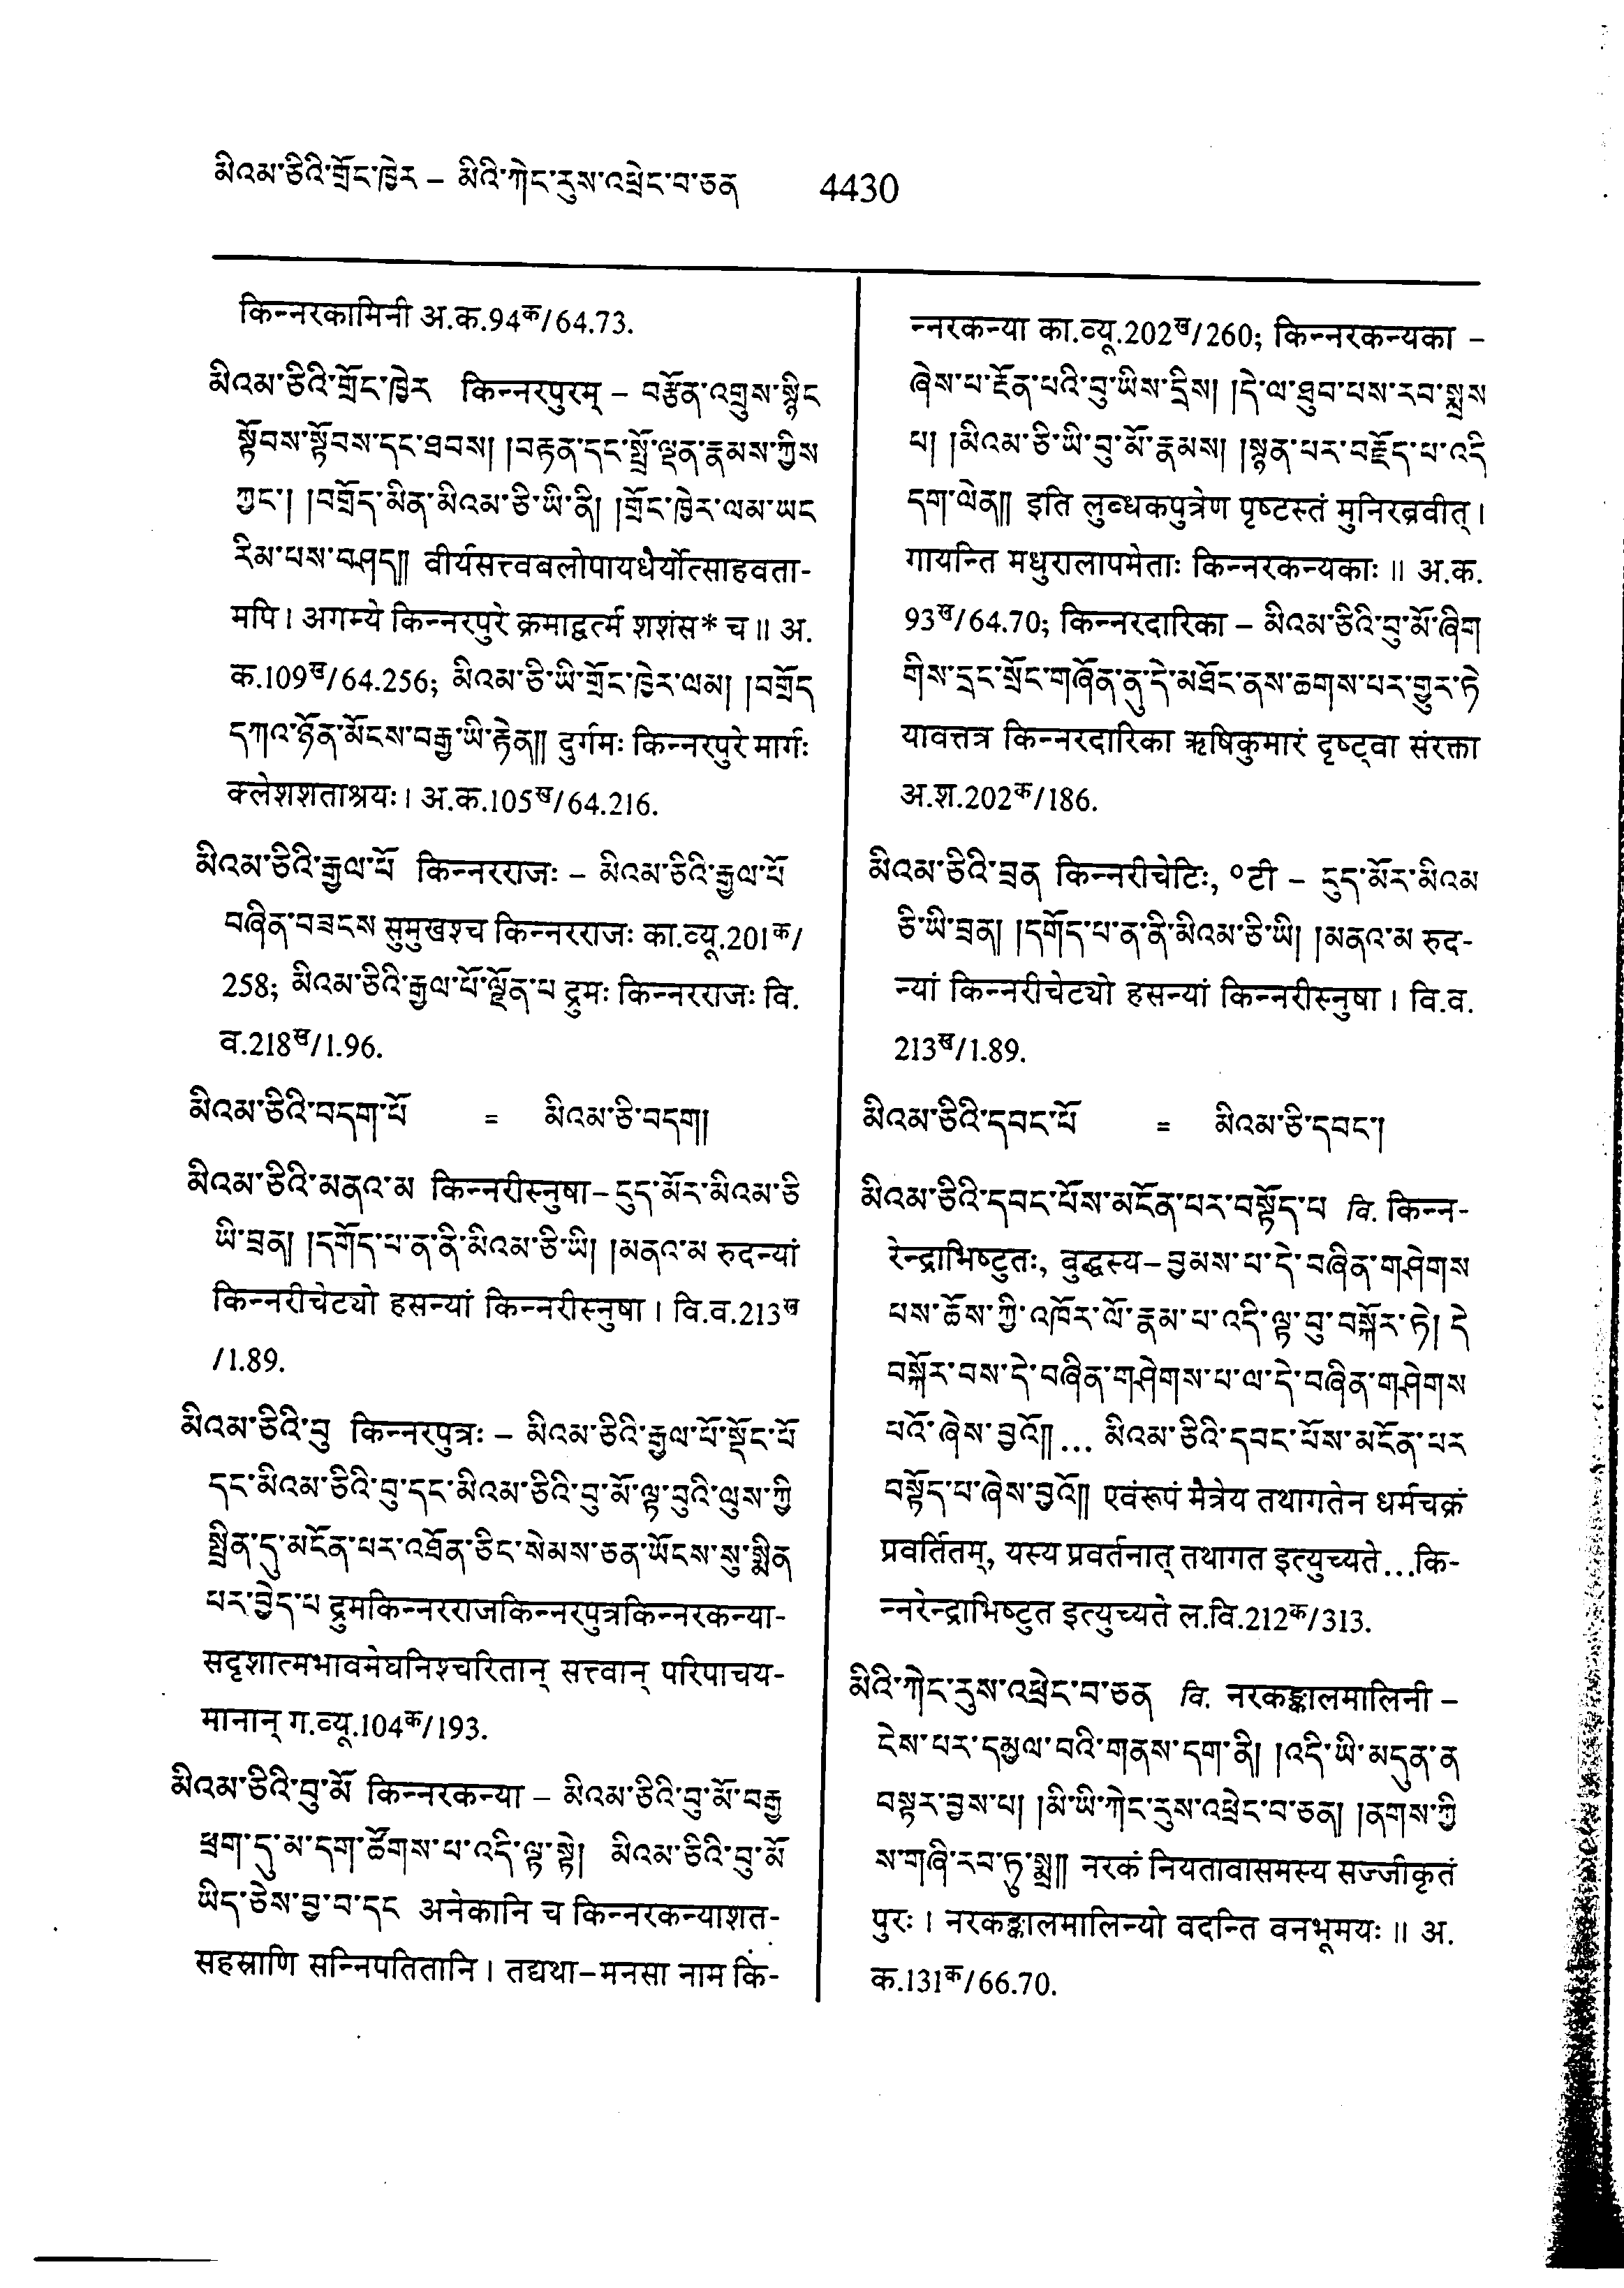 མིའམ་ཅིའི་གྲོང་ཁྱེར – མིའི་ཀེང་རུས་འཕྲེང་བ་ཅན 4430
किन्नरकामिनी अ.क.94क/64.73.
མིའམ་ཅིའི་གྲོང་ཁྱེར किन्नरपुरम् – བརྩོན་འགྲུས་སྙིང
སྟོབས་སྟོབས་དང་ཐབས། །བརྟན་དང་སྤྲོ་ལྡན་རྣམས་ཀྱིས
ཀྱང་། །བགྲོད་མིན་མིའམ་ཅི་ཡི་ནི། །གྲོང་ཁྱེར་ལམ་ཡང
རིམ་པས་བཤད།། वीर्यसत्त्वबलोपायधैर्योत्साहवता-
मपि। अगम्ये किन्नरपुरे क्रमाद्वर्त्म शशंस* च॥ अ.
क.109ख/64.256; མིའམ་ཅི་ཡི་གྲོང་ཁྱེར་ལམ། །བགྲོད
དཀའ་ཉོན་མོངས་བརྒྱ་ཡི་རྟེན།། दुर्गमः किन्नरपुरे मार्गः
क्लेशशताश्रयः। अ.क.105ख/64.216.
མིའམ་ཅིའི་རྒྱལ་པོ किन्नरराजः – མིའམ་ཅིའི་རྒྱལ་པོ
བཞིན་བཟངས सुमुखश्च किन्नरराजः का.व्यू.201क/
258; མིའམ་ཅིའི་རྒྱལ་པོ་ལྗོན་པ द्रुमः किन्नरराजः वि.
व.218ख/1.96.
མིའམ་ཅིའི་བདག་པོ = མིའམ་ཅི་བདག།
མིའམ་ཅིའི་མནའ་མ किन्नरीस्नुषा – དུད་མོར་མིའམ་ཅི
ཡི་བྲན། །དགོད་པ་ན་ནི་མིའམ་ཅི་ཡི། །མནའ་མ रुदन्यां
किन्नरीचेट्यो हसन्यां किन्नरीस्नुषा। वि.व.213ख
/1.89.
མིའམ་ཅིའི་བུ किन्नरपुत्रः – མིའམ་ཅིའི་རྒྱལ་པོ་སྡོང་པོ
དང་མིའམ་ཅིའི་བུ་དང་མིའམ་ཅིའི་བུ་མོ་ལྟ་བུའི་ལུས་ཀྱི
སྤྲིན་དུ་མངོན་པར་འཐོན་ཅིང་སེམས་ཅན་ཡོངས་སུ་སྨིན
པར་བྱེད་པ द्रुमकिन्नरराजकिन्नरपुत्रकिन्नरकन्या-
सदृशात्मभावमेघनिश्चरितान् सत्त्वान् परिपाचय-
मानान् ग.व्यू.104क/193.
མིའམ་ཅིའི་བུ་མོ किन्नरकन्या – མིའམ་ཅིའི་བུ་མོ་བརྒྱ
ཕྲག་དུ་མ་དག་ཚོགས་པ་འདི་ལྟ་སྟེ། མིའམ་ཅིའི་བུ་མོ
ཡིད་ཅེས་བྱ་བ་དང अनेकानि च किन्नरकन्याशत-
सहस्राणि सन्निपतितानि। तद्यथा – मनसा नाम किं-
न्नरकन्या का.व्यू.202ख/260; किन्नरकन्यका –
ཞེས་པ་རྔོན་པའི་བུ་ཡིས་དྲིས། །དེ་ལ་ཐུབ་པས་རབ་སྨྲས
པ། །མིའམ་ཅི་ཡི་བུ་མོ་རྣམས། །སྙན་པར་བརྗོད་པ་འདི
དག་ལེན།། इति लुब्धकपुत्रेण पृष्टस्तं मुनिरब्रवीत्।
गायन्ति मधुरालापमेताः किन्नरकन्यकाः॥ अ.क.
93ख/64.70; किन्नरदारिका – མིའམ་ཅིའི་བུ་མོ་ཞིག
གིས་དྲང་སྲོང་གཞོན་ནུ་དེ་མཐོང་ནས་ཆགས་པར་གྱུར་ཏེ
यावत्तत्र किन्नरदारिका ऋषिकुमारं दृष्ट्वा संरक्ता
अ.श.202क/186.
མིའམ་ཅིའི་བྲན किन्नरीचेटिः, ॰टी – དུད་མོར་མིའམ
ཅི་ཡི་བྲན། །དགོད་པ་ན་ནི་མིའམ་ཅི་ཡི། །མནའ་མ रुद-
न्यां किन्नरीचेट्यो हसन्यां किन्नरीस्नुषा। वि.व.
213ख/1.89.
མིའམ་ཅིའི་དབང་པོ = མིའམ་ཅི་དབང་།
མིའམ་ཅིའི་དབང་པོས་མངོན་པར་བསྟོད་པ वि. किन्न-
रेन्द्राभिष्टुतः, बुद्धस्य – བྱམས་པ་དེ་བཞིན་གཤེགས
པས་ཆོས་ཀྱི་འཁོར་ལོ་རྣམ་པ་འདི་ལྟ་བུ་བསྐོར་ཏེ། དེ
བསྐོར་བས་དེ་བཞིན་གཤེགས་པ་ལ་དེ་བཞིན་གཤེགས
པའོ་ཞེས་བྱའོ།། ... མིའམ་ཅིའི་དབང་པོས་མངོན་པར
བསྟོད་པ་ཞེས་བྱའོ།། एवंरूपं मैत्रेय तथागतेन धर्मचक्रं
प्रवर्तितम्, यस्य प्रवर्तनात् तथागत इत्युच्यते...कि-
न्नरेन्द्राभिष्टुत इत्युच्यते ल.वि.212क/313.
མིའི་ཀེང་རུས་འཕྲེང་བ་ཅན वि. नरकङ्कालमालिनी –
ངེས་པར་དམྱལ་བའི་གནས་དག་ནི། །འདི་ཡི་མདུན་ན
བསྟར་བྱས་པ། །མི་ཡི་ཀེང་རུས་འཕྲེང་བ་ཅན། །ནགས་ཀྱི
ས་གཞི་རབ་ཏུ་སྨྲ།། नरकं नियतावासमस्य सज्जीकृतं
पुरः। नरकङ्कालमालिन्यो वदन्ति वनभूमयः॥ अ.
क.131क/66.70.